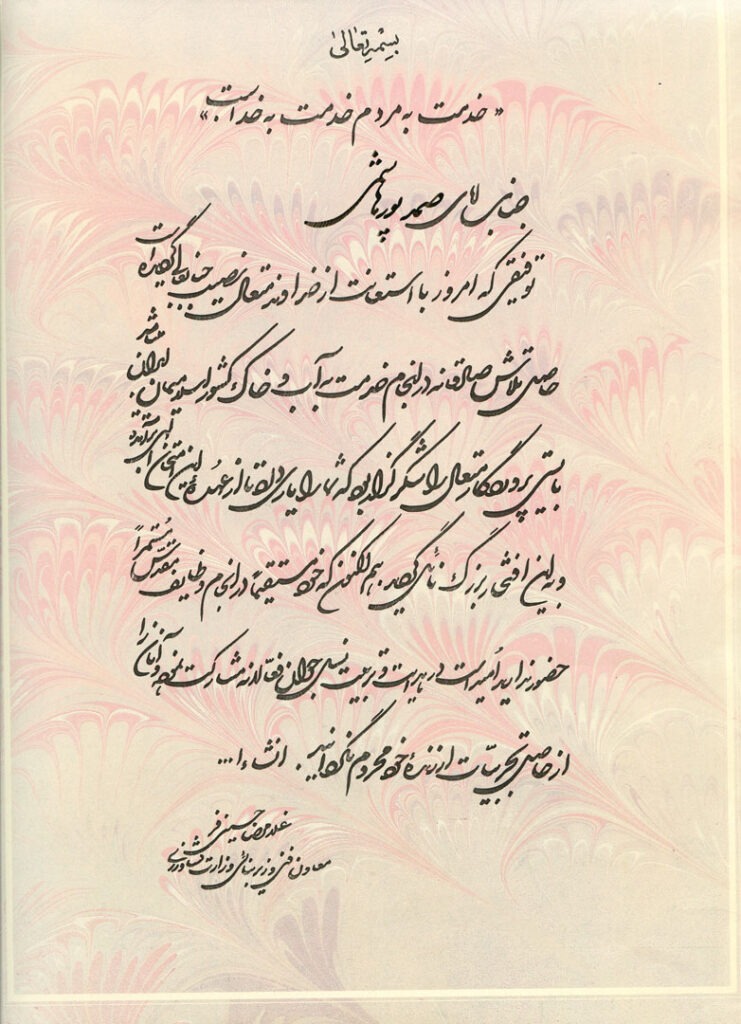 بسمه تعالی
« خدمت به مردم خدمت به خداست »
جناب آقای صمد پورهاشمی
توفیقی که امروز با استعانت از خداوند متعال نصیب جنابعالی گردیده است
حاصل تلاش صادقانه در انجام خدمت به آب و خاک کشور اسلامیمان ایران
بایستی پروردگار متعال را شکرگزار بود که شما را یاری داد تا از عهدهٔ این امتحان الهی برآمده
و به این افتخار بزرگ نائل گردید. هم اکنون که خود مستقیماً در انجام وظایف مقدس مستمراً
حضور ندارید امید است در هدایت و تربیت نسل جوان فعالانه مشارکت نموده و آنان را
از حاصل تجربیات ارزندهٔ خود محروم نگردانید. انشاءا...
غلامرضا حسینی فر
معاون فنی و زیربنائی وزارت کشاورزی